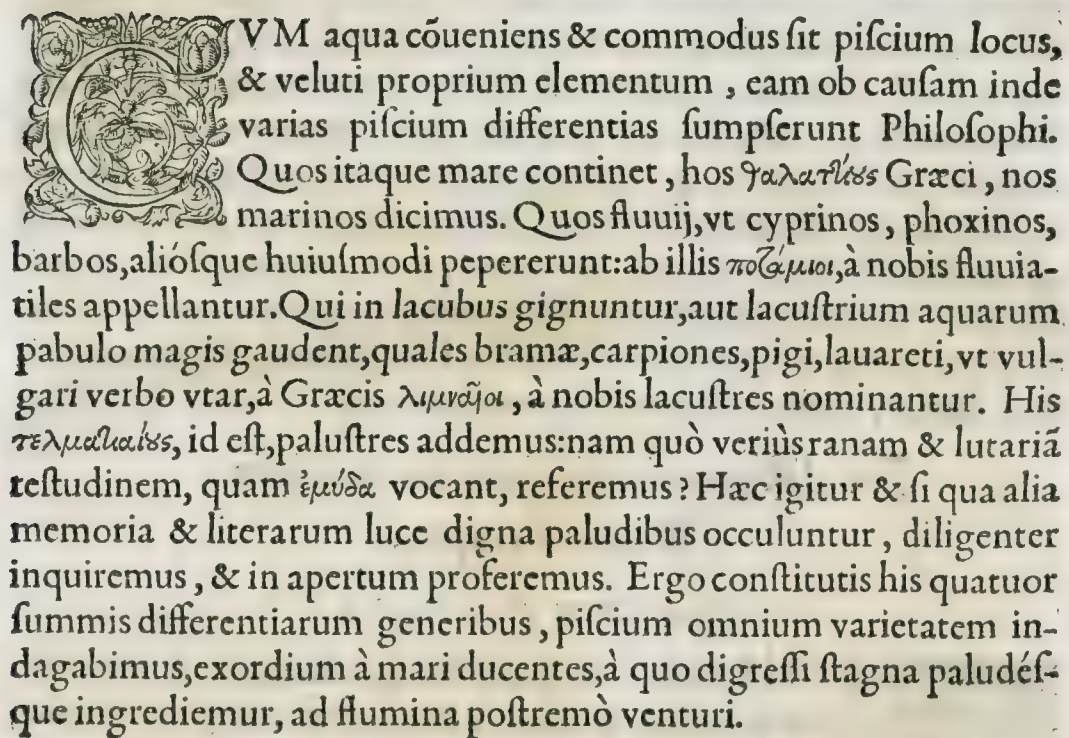 CVM aqua cōueniens & commodus ſit piſcium locus,
& veluti proprium elementum , eam ob cauſam inde
varias piſcium differentias ſumpſerunt Philoſophi.
Quos itaque mare continet , hos θαλαττίους Græci , nos
marinos dicimus. Quos fluuij,vt cyprinos , phoxinos,
barbos,alióſque huiuſmodi pepererunt:ab illis ποτάμιοι,à nobis fluuia-
tiles appellantur.Qui in lacubus gignuntur,aut lacuſtrium aquarum
pabulo magis gaudent,quales bramæ,carpiones,pigi,lauareti,vt vul-
gari verbo vtar,à Græcis λιμναῖοι , à nobis lacuſtres nominantur. His
τελματιαίους, id eſt,paluſtres addemus:nam quò veriùs ranam & lutariã
teſtudinem, quam ἐμύδα vocant, referemus ? Hæc igitur & ſi qua alia
memoria & literarum luce digna paludibus occuluntur , diligenter
inquiremus , & in apertum proferemus. Ergo conſtitutis his quatuor
ſummis differentiarum generibus , piſcium omnium varietatem in-
dagabimus,exordium à mari ducentes,à quo digreſſi ſtagna paludéſ-
que ingrediemur, ad flumina poſtremò venturi.